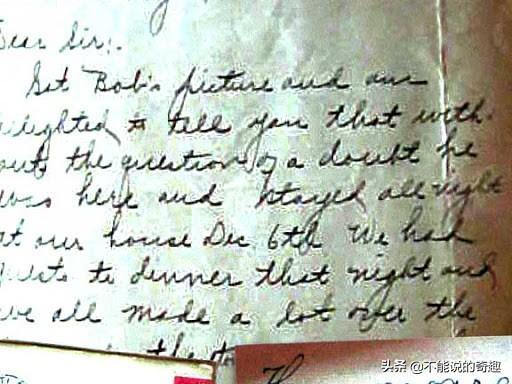 Dear Sir:.
Got Bob's picture and am
delighted to tell you that with-
out the question of a doubt he
was here and stayed all night
at our house Dec 6th We had
guests to dinner that night and
we all made a lot over the
that
头条 @不能说的奇趣